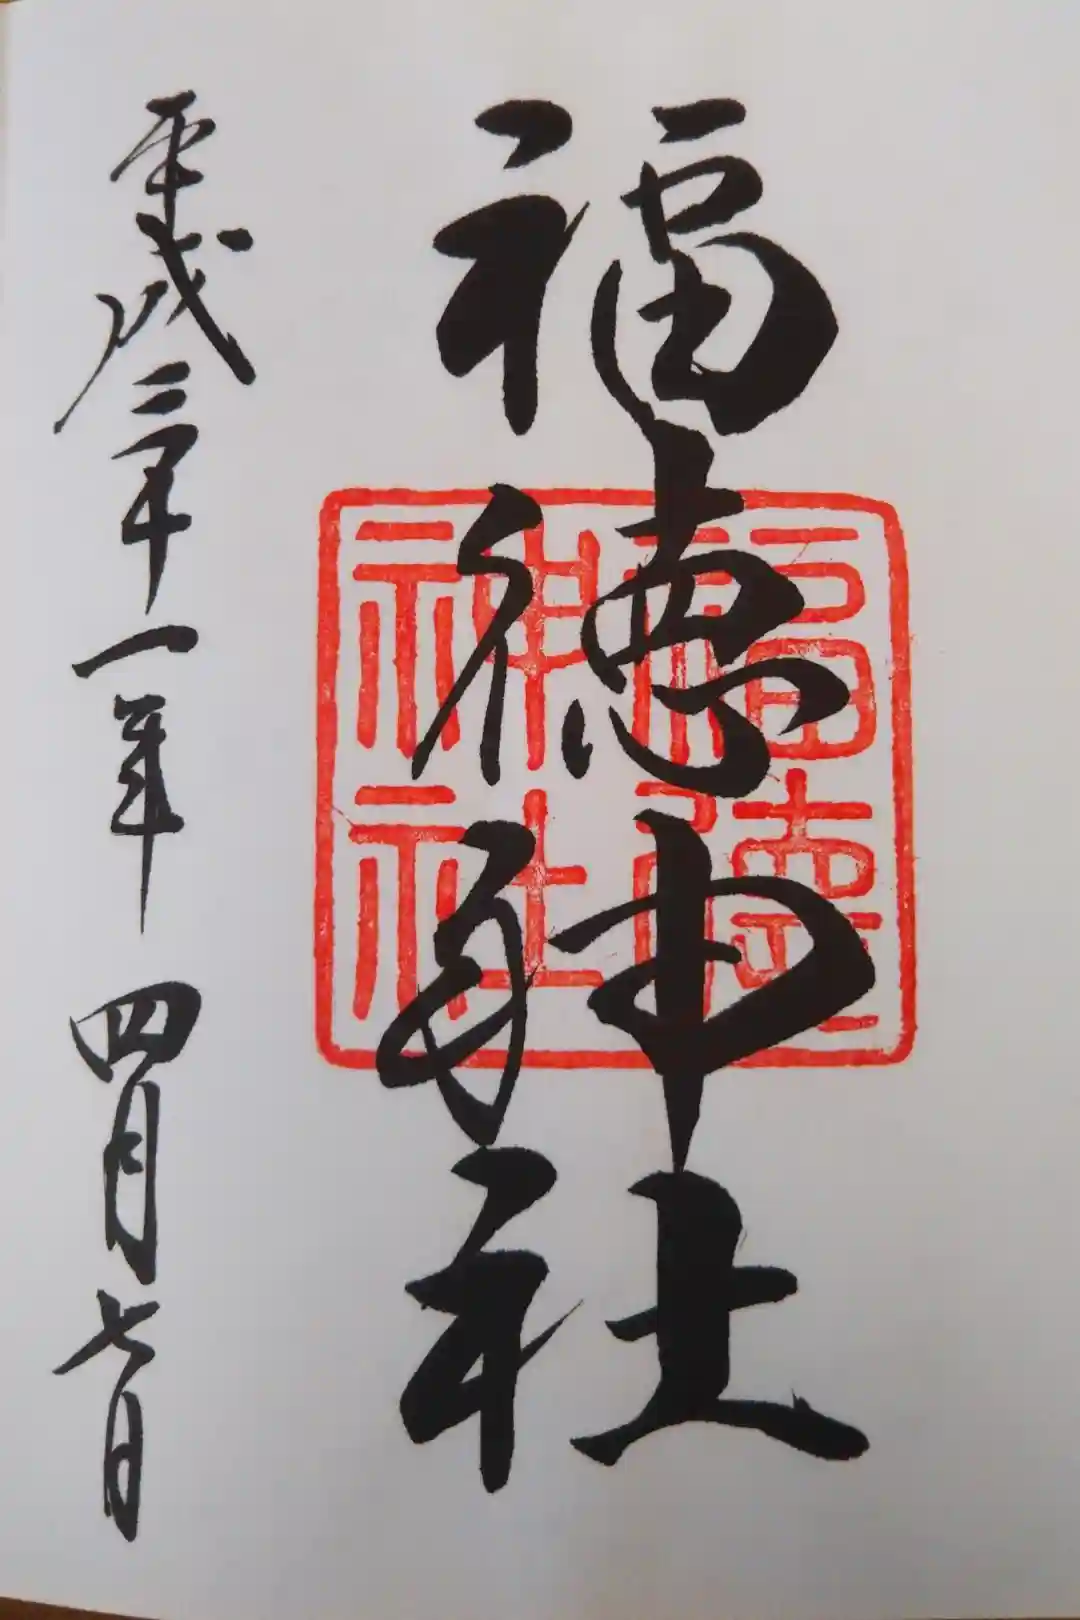 福徳神社
福徳神社
平成三十一年 四月七日